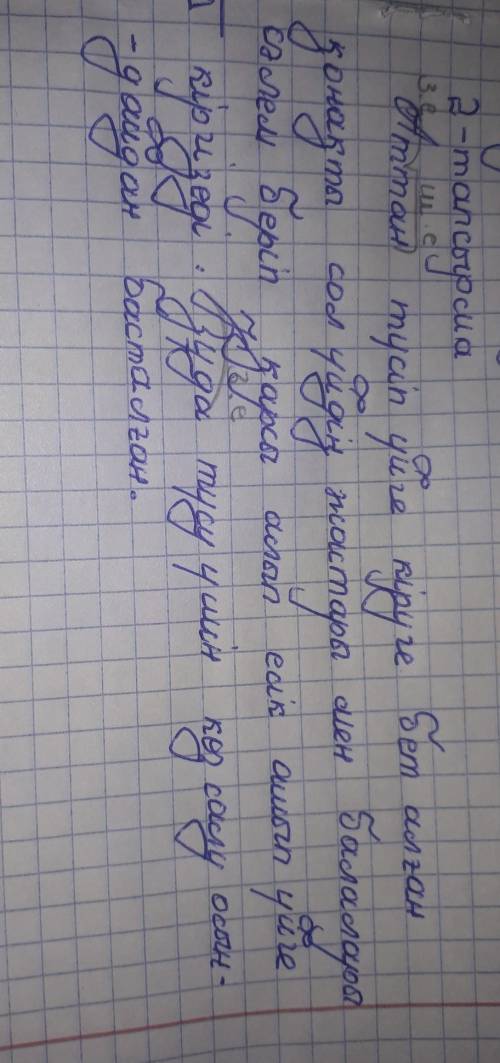 2-тапсырма
зе ш.е
Аттан түсіп үйге кіруге бет алған
қонақты сол үйдің жастары мен балалары
сәлем беріп қарсы алып есік ашып үйге
кіргізеді. Үзуда түсу үшін көз салу осын-
-дайдан басталған.